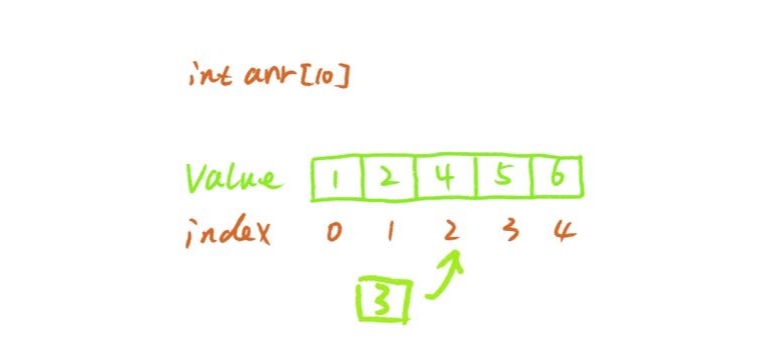 int arr[10]
Value 1 2 4 5 6
index 0 1 2 3 4
3